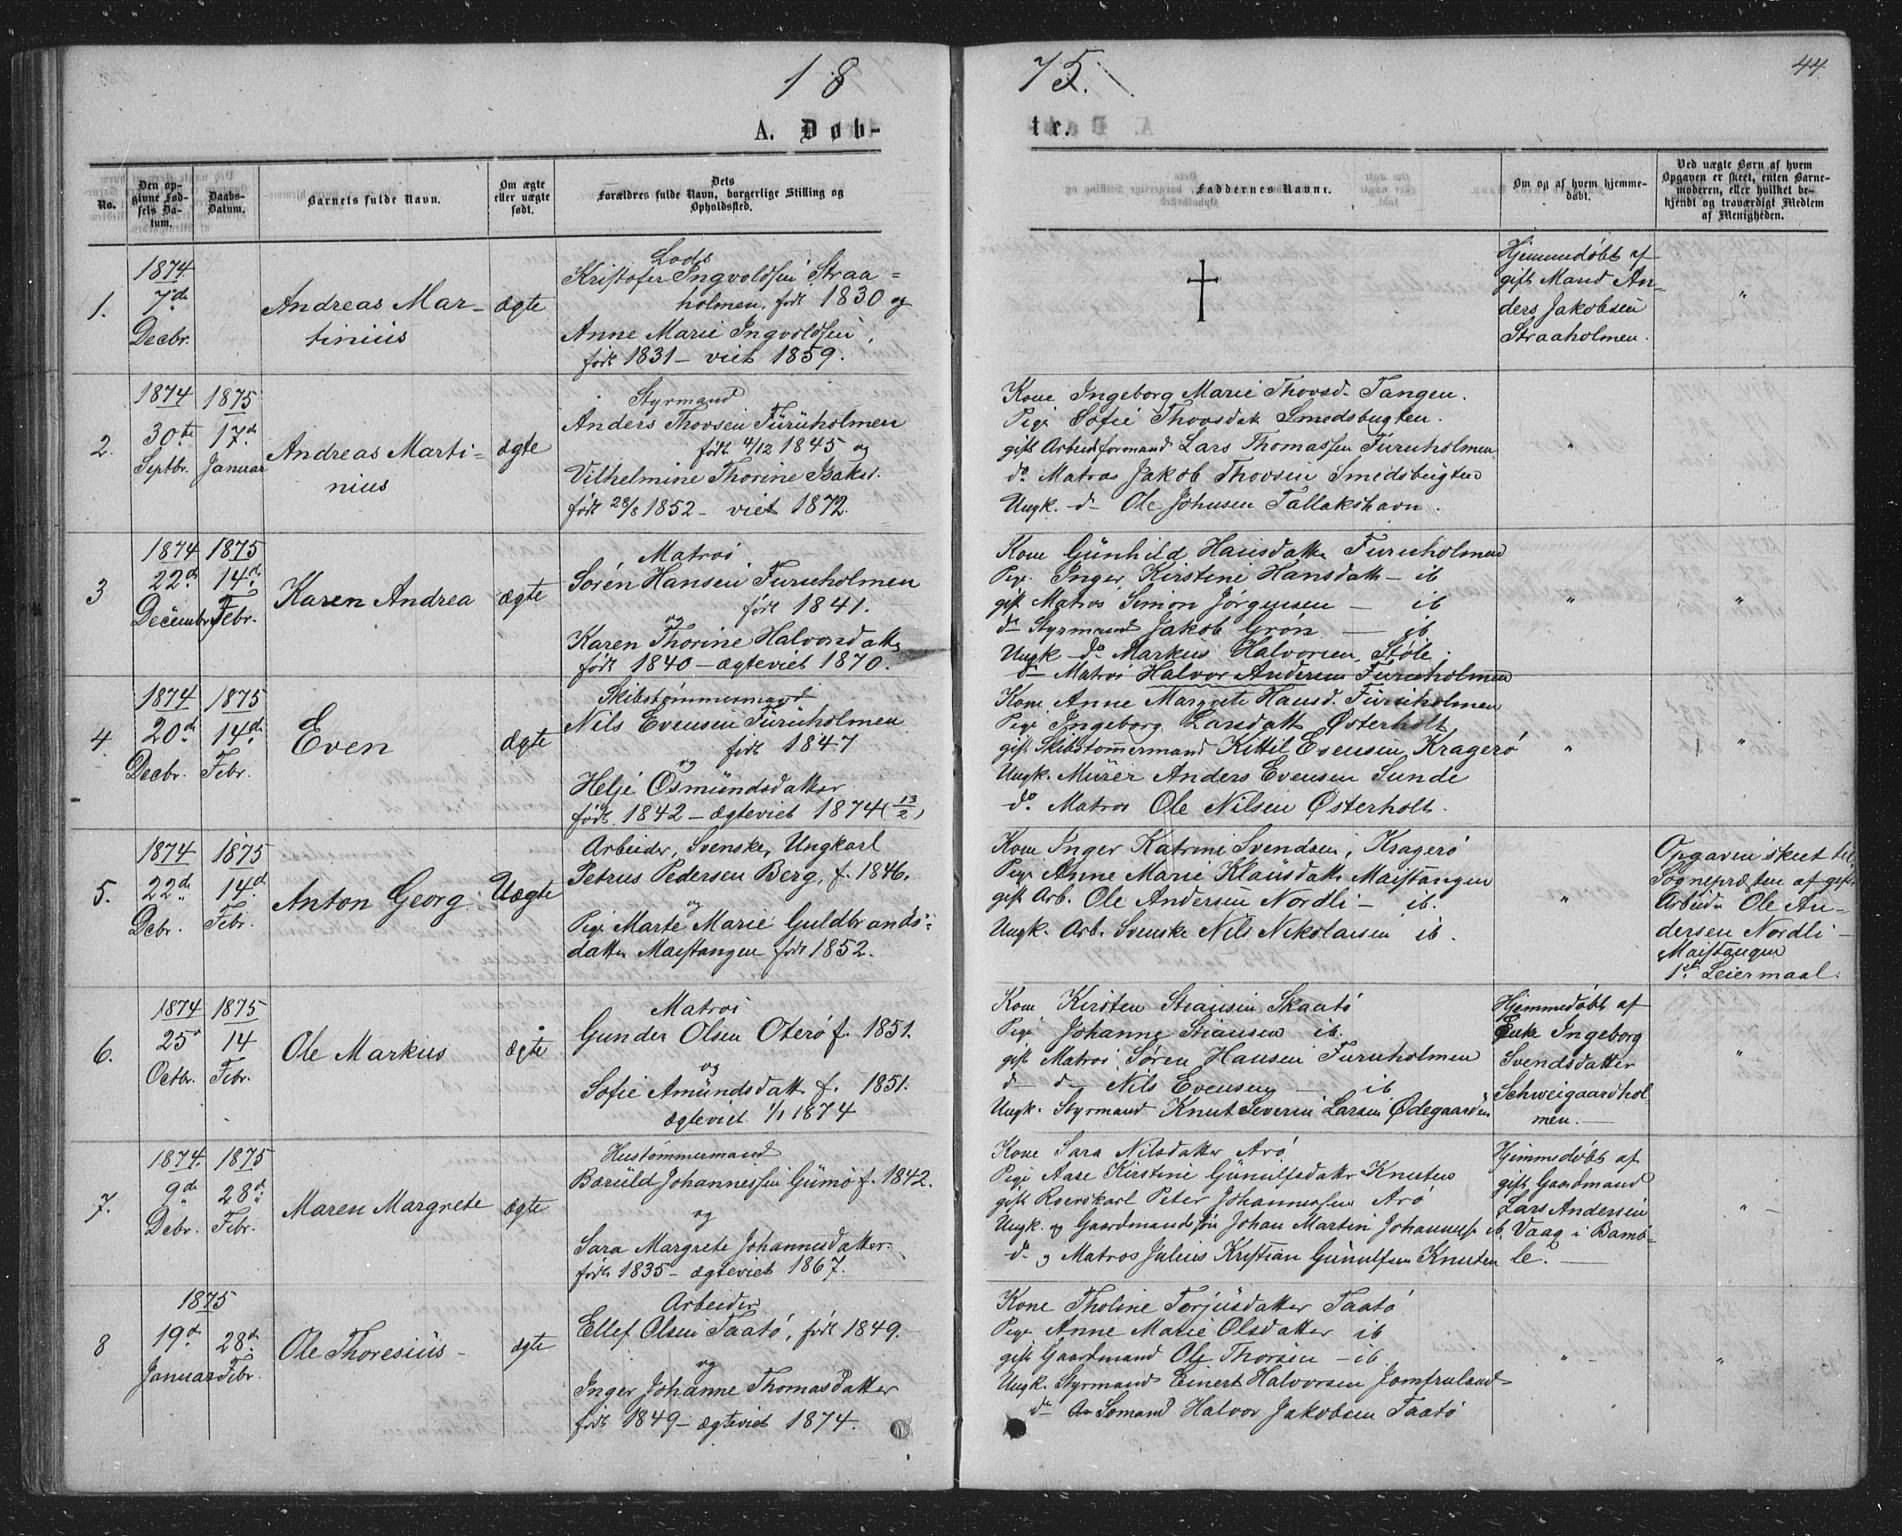 18 75.
44
A. Døb-
te.
No.
Den op-
givne Fød-
sels Da-
tum.
Daabs-
Datum.
Barnets fulde Navn.
Om ægte
eller uægte
født.
Dets
Forældres fulde Navn, borgerlige Stilling og
Opholdssted.
Faddernes Navne.
Om og af hvem hjemme-
døbt.
Ved uægte Børn af hvem
Opgaven er skeet, enten Barne-
moderen, eller hvilket be-
kjendt og troværdigt Medlem
af Menigheden.
1.
1874
7de
Decbr.
Andreas Mar-
tinius
ægte
Lods
Kristofer Ingvoldsen Straa-
holmen, født 1830 og
Anne Marie Ingvoldsen,
født 1831 - viet 1859.
†
Hjemmedøbt af
gift Mand An-
ders Jakobsen
Straaholmen.
"
2.
1874
30te
Septbr.
1875
17de
Januar
Andreas Marti-
nius
ægte
Styrmand
Anders Thovsen Furuholmen
født 4/12 1845 og
Vilhelmine Thorine Isaksd.
født 28/8 1852 - viet 1872.
Kone Ingeborg Marie Thovsd. Tangen.
Pige Sofie Thovsdatt Smedsbugten.
gift Arbeidsformand Lars Thomassen Furuholmen
do. Matros Jakob Thovsen Smedsbugten
Ungk. do Ole Johnsen Tallakshavn.
"
3
1874
22de
Decembr.
1875
14de
Febr.
Karen Andrea
ægte
Matros
Søren Hansen Furuholmen
født 1841.
og
Karen Thorine Halvorsdatter
født 1840 - ægteviet 1870.
Kone Günhild Hansdatter Furuholmen
Pige Inger Kirstine Hansdatt - ib
gift Matros Simon Jørgensen - ib
do Styrmand Jakob Grøn - ib
Ungk do. Markus Halvorsen, Støle.
do Matros Halvor Andersen Furuholmen
"
"
4
1874
20de
Decbr.
1875
14de
Febr.
Even
ægte
Skibstømmermand
Nils Evensen Furuholmen
født 1847
og
Helje Osmundsdatter
født 1842 - ægteviet 1874 (13/2)
Kone Anne Margrete Hansd. Furuholmen
Pige Ingeborg Larsdatt Østerholt,
gift Skibstømmermand Kittil Evensen, Kragerø
Ungk. Mürer Anders Evensen Sunde
do. Matros Ole Nilsen Østerholt.
"
"
5.
1874
22de
Debr.
1875
14de
Febr.
Anton Georg.
Uægte
Arbeider, Svenske, Ungkarl
Petrus Pedersen Berg, f. 1846.
og
Pige Marte Marie Guldbrands-
datter Maistangen født 1852.
Kone Inger Katrine Svendsen, Kragerø
Pige Anne Marie Klausdatt Maistangen
gift Arb. Ole Andersen Nordli - ib.
Ungk. Arb. Svenske Nils Nikolaisen ib.
"
Opgaven skeet til
Sognepræsten af gift
Arbeider Ole An-
dersen Nordli -
Maistangen
1ste Leiermaal.
6.
1874
25de
Octbr.
1875
14
Febr.
Ole Markus
ægte
Matros
Gunder Olsen Oterø f. 1851.
og
Sofie Amundsdatt f. 1851.
ægteviet 1/1 1874
Kone Kirsten Stiansen Skaatø
Pige Johanne Stiansen ib.
gift Matros Søren Hansen Furuholmen
do do Nils Evensen - ib
Ungk. Styrmand Knut Severin Larsen Ødegaarden
Hjemmedøbt af
Enke Ingeborg
Svendsdatter
Schweigaardhol
men.
"
7.
1874.
9de
Debr.
1875
28de
Febr.
Maren Margrete
ægte
Hustømmermand
Børuld Johannessen Gumø f. 1842.
og
Sara Margrete Johannesdatter.
født 1835 - ægteviet 1867.
Kone Sara Nilsdatter Arø
Pige Aase Kirstine Gunulfsdatter Knuten
gift Roerskarl Peter Johannessen Arø
Ungk. og Gaardmandssøn Johan Martin Johanness. ib
do og Matros Julius Kristian Gunulfsen Knuten
Hjemmedøbt af
gift Gaardmand
Lars Andersen
Vaag i Bamb-
le.
"
8
1875
19de
Januar
28de
Febr.
Ole Thoresius -
ægte
Arbeider
Ellef Olsen Taatø, født 1849.
og
Inger Johanne Thomasdatter
født 1849 - ægteviet 1874.
Kone Tholine Torjusdatter Taatø
Pige Anne Marie Olsdatter ib
gift Gaardmand Ole Thorsen - ib.
Ungk. Styrmand Einert Halvorsen Jomfruland
do Sømand Halvor Jakobsen Taatø
"
"